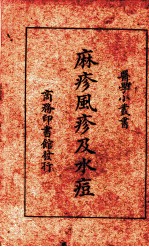 醫學小叢書
麻疹風疹及水痘
商務印書館發行